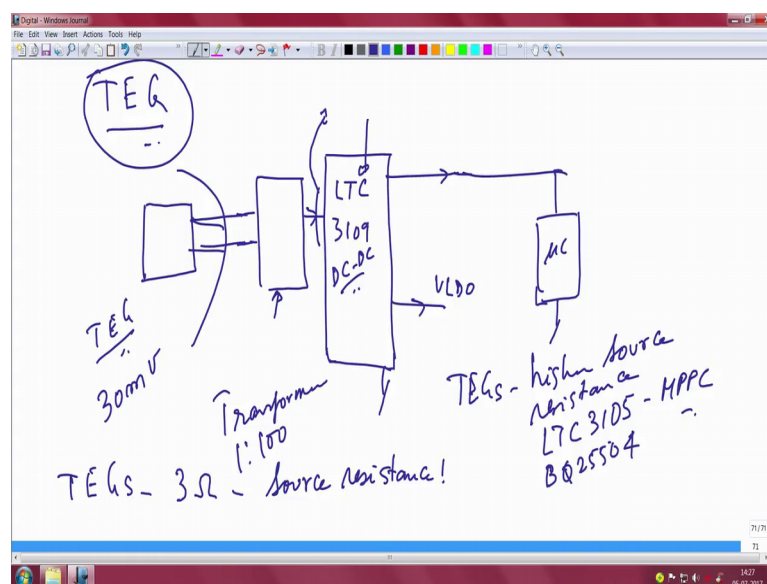 Digital - Windows Journal
File Edit View Insert Actions Tools Help
TEG
LTC
3109
DC-DC
μC
VLDO
TEG
30mV
Transformer
1:100
TEGs - higher source
resistance
LTC 3105 - MPPC
BQ25504
TEGs - 3Ω - Source resistance!
71/71
71
14:27
05-07-2017